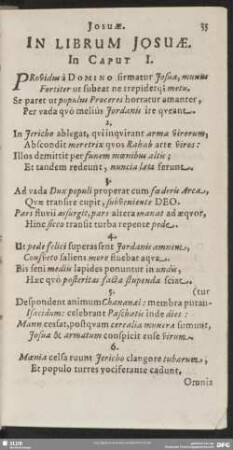 Josuæ. 35
IN LIBRUM JOSUÆ.
In Caput I.
PRovidus à DOMINO firmatur Josua, munus
Fortiter ut subeat ne trepidetq; metu.
Se paret ut populus Proceres hortatur amanter,
Per vada quò meliùs Jordanis ire queant.
2.
In Jericho ablegat, qui inquirant arma virorum,
Abscondit meretrix quos Rahab arte viros:
Illos demittit per funem mœnibus altis;
Et tandem redeunt, nuncia læta ferunt.
3.
Ad vada Dux populi properat cum fœderis Arca,
Quæ transire cupit, subveniente DEO.
Pars fluvii assurgit, pars altera manat ad æquor,
Hinc sicco transit turba repente pede.
4.
Ut pede felici superassent Jordanis amnem,
Consveto saliens more fluebat aqua.
Bis seni mediis lapides ponuntur in undis,
Hæc quò posteritas facta stupenda sciat.
5. (tur
Despondent animum Chananæi: membra putan-
Isacidum: celebrant Paschatis inde dies:
Mann, cessat, postquam cerealia munera sumunt,
Josua & armatum conspicit ense virum.
6.
Mœnia celsa ruunt Jericho clangore tubarum,
Et populo turres vociferante cadunt.
Omnia